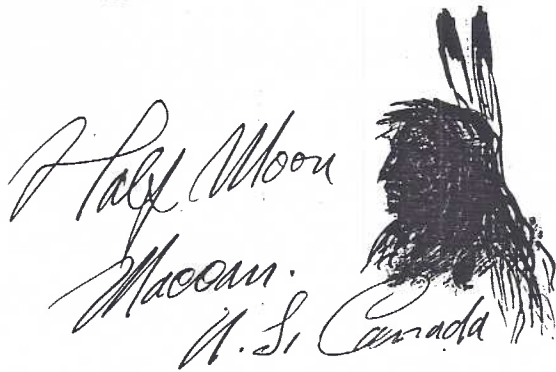 Half Moon
Macoan.
N. S. Canada